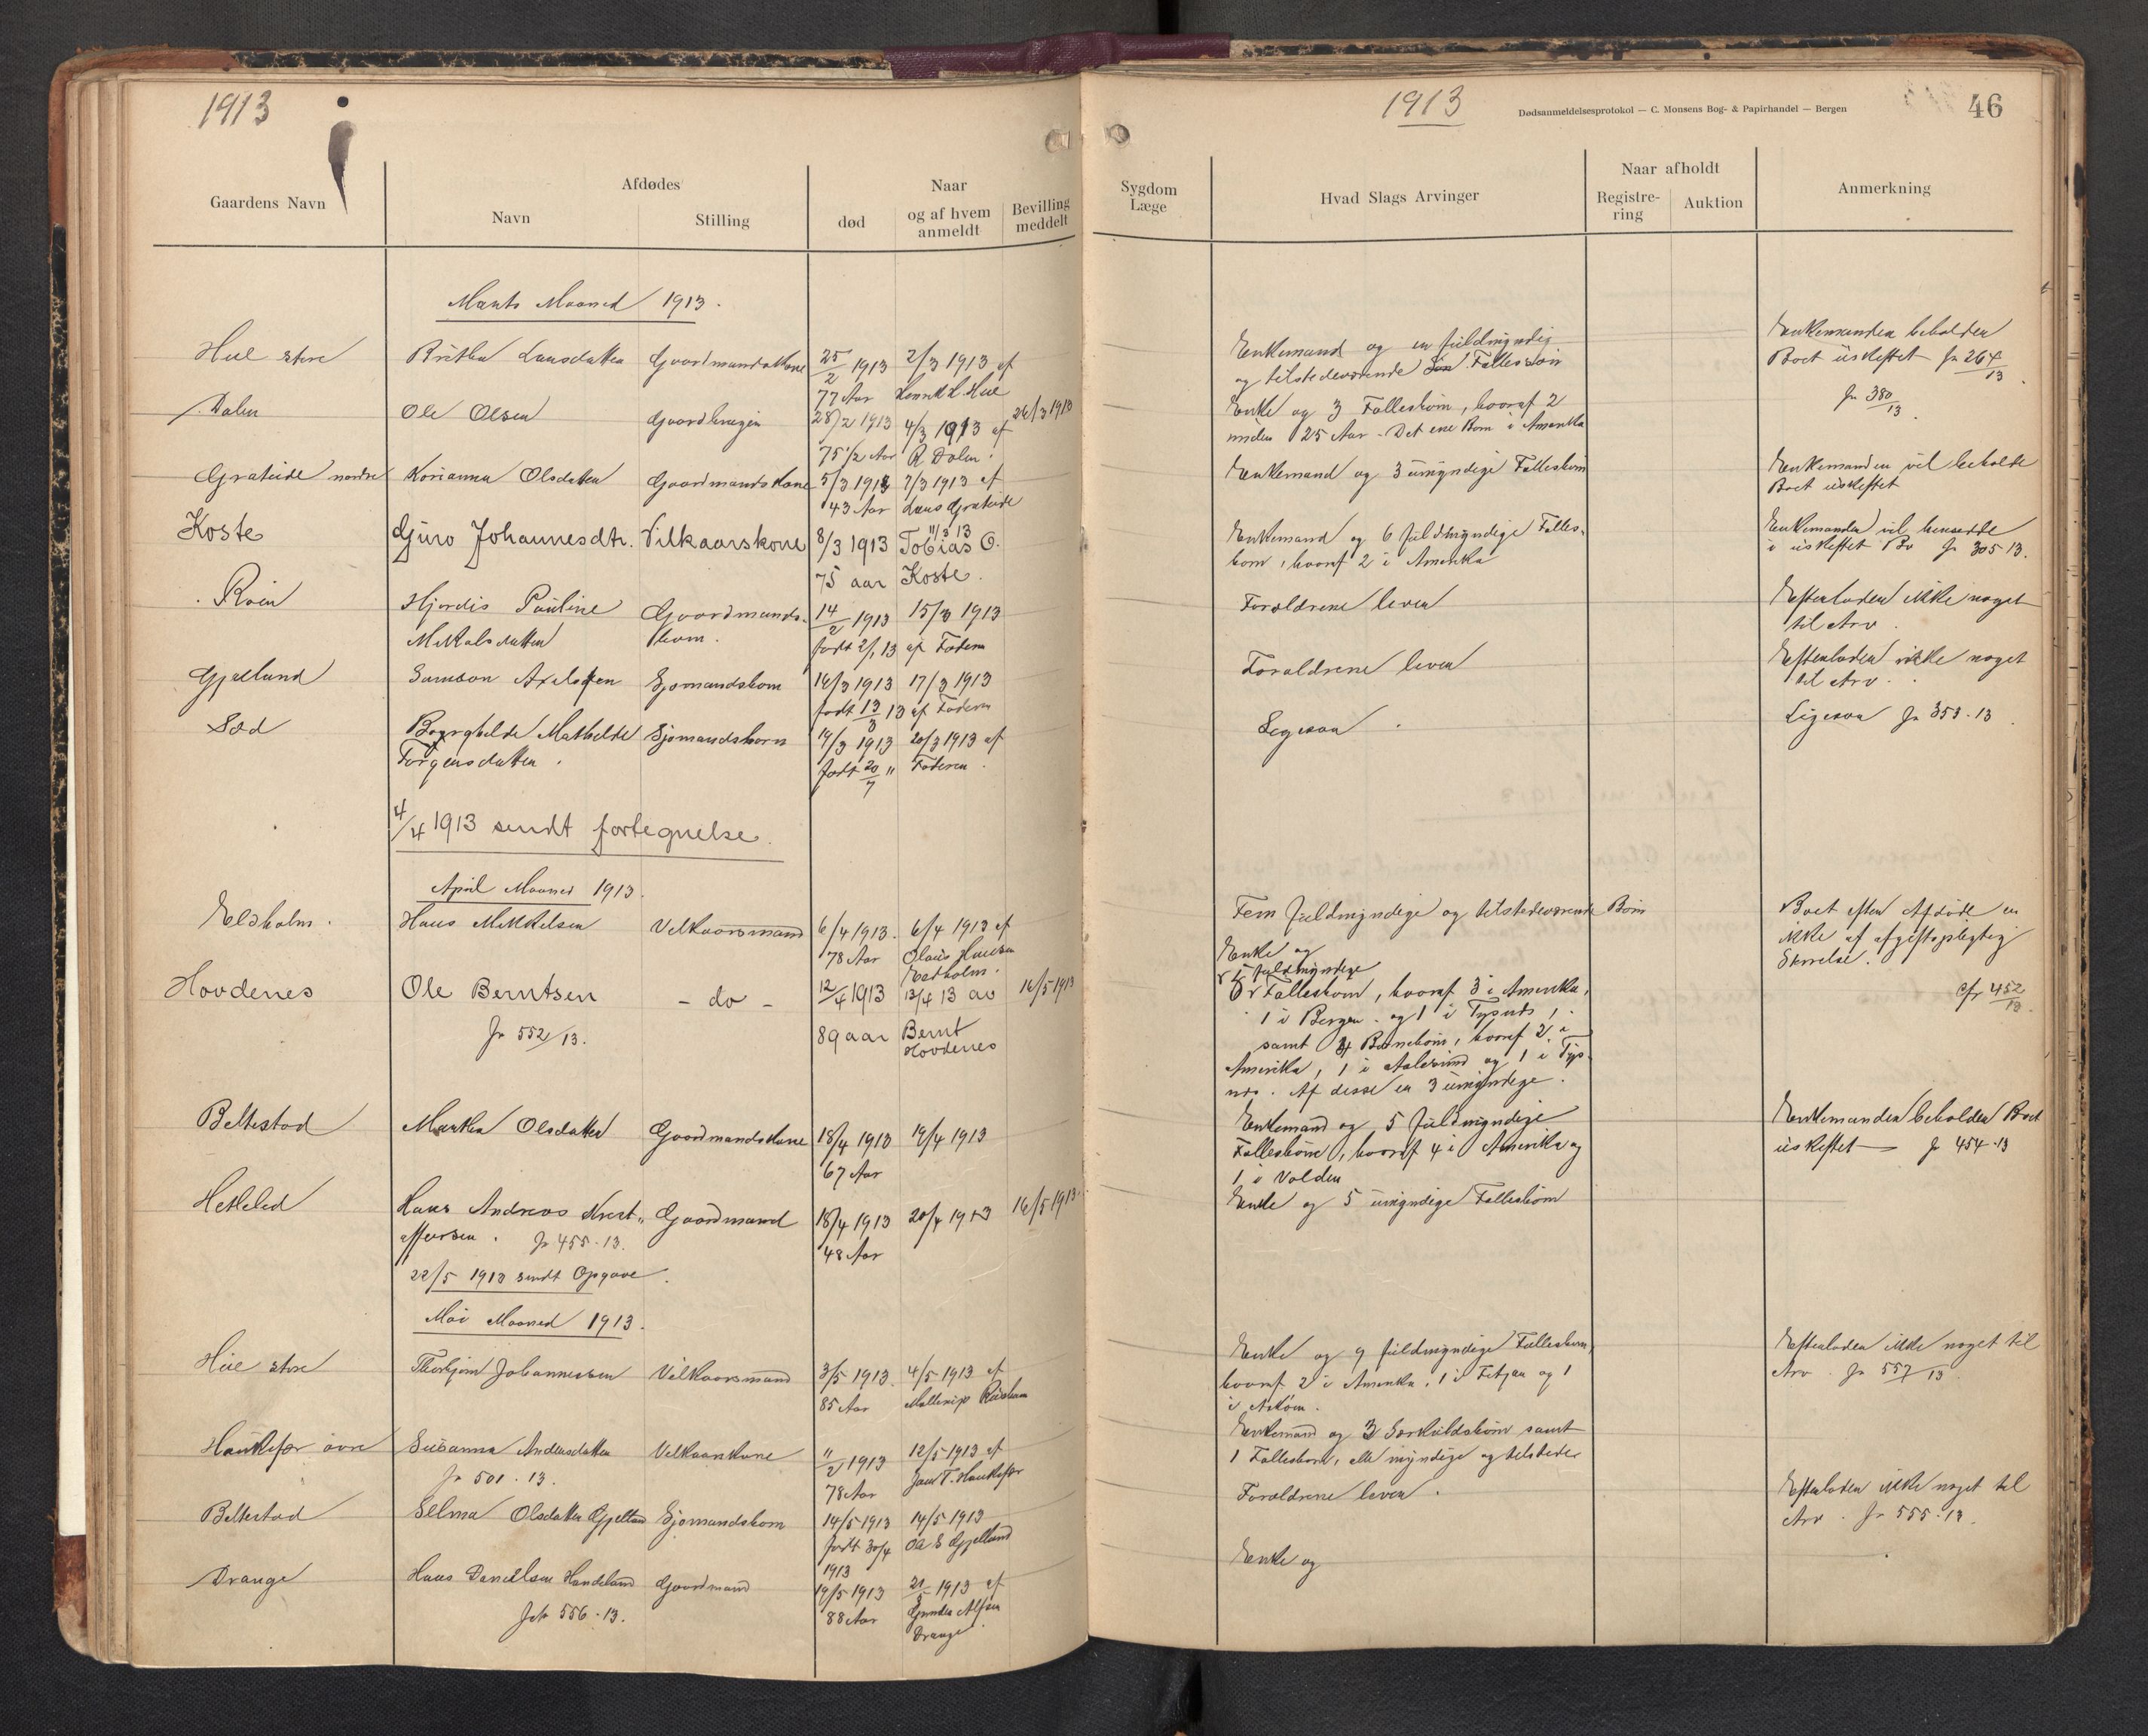 1913
1913
Dødsanmeldelsesprotokol — C. Monsens Bog- & Papirhandel — Bergen
46
Gaardens Navn
Afdødes
Navn
Stilling
Naar
død
og af hvem anmeldt
Bevilling meddelt
Sygdom
Læge
Hvad Slags Arvinger
Naar afholdt
Registre-
ring
Auktion
Anmerkning
Marts Maaned 1913.
Hiie store
Brithe Larsdatter
Gaardmandskone
25/2 1913
2/3 1913 af
77 Aar
Enkemand og en fuldmyndig
og tilstedeværende Fællessøn
Enkemanden beholder
Boet uskiftet Jr 264/13.
Jr 380/13.
Dalen
Ole Olsen
Gaardbruger
28/2 1913
4/3 1913 af
26/3 1913
75 1/2 Aar
R Dalen.
Enke og 3 Fællesbørn, hvoraf 2
under 25 Aar - Det ene Barn i Amerika
Grateide nordre
Korianna Olsdatter
Gaardmandskone
5/3 1913
7/3 1913 af
43 Aar
Lars Grateide
Enkemand og 3 umyndige Fællesbørn
Enkemanden vil beholde
Boet uskiftet
Koste
Guro Johannesdtr.
Vilkaarskone
8/3 1913
11/3 13
Tobias O.
75 aar
Koste.
Enkemand og 6 fuldmyndige Fælles-
børn, hvoraf 2 i Amerika
Enkemanden vil hensidde
i uskiftet Bo Jr 305 13.
Hjordis Pauline
Mikalsdatter
Gaardmands-
barn.
14/2 1913
15/3 1913
født 2/1 13
af Faderen
Forældrene lever
Efterlader ikke noget
til Arv.
Gjelland
Samson Axelsen
Sjømandsbarn
16/3 1913
17/3 1913
født 13/3 13
af Faderen
Forældrene lever
Efterlader ikke noget
til Arv.
Borghilde Mathilde
Torgersdatter.
Sjømandsbarn
19/3 1913
20/3 1913 af
født 20/7 "
Faderen.
Ligesaa.
Ligesaa Jr 353-13.
4/4 1913 sendt fortegnelse.
April Maaned 1913.
Eldholm.
Hans Mikkelsen
Vilkaarsmand
6/4 1913.
6/4 1913 af
78 Aar
Olaus Hansen
Eldholm.
Fem fuldmyndige og tilstedeværende Børn
Boet efter Afdøde er
ikke af afgiftspligtig
Størrelse.
Hovdenes
Ole Berntsen
- do -
12/4 1913
13/4 13 av
16/5 1913
Jr 552/13.
89 aar
Bernt
Hovdenes
Enke og
5 fuldmyndige
Fællesbørn, hvoraf 3 i Amerika,
1 i Bergen og 1 i Tysnes,
samt 4 Barnebørn, hvoraf 2 i
Amerika, 1 i Aalesund og 1 i Tys-
nes. Af disse er 3 umyndige.
cfr 452/13.
Beltestad
Marthe Olsdatter
Gaardmandskone
18/4 1913
19/4 1913
67 Aar
Enkemand og 5 fuldmyndige
Fællesbørn, hvoraf 4 i Amerika og
1 i Valden
Enkemanden beholder Boet
uskiftet Jr 454-13
Hetleled
Hans Andreas Krist-
offersen. Jr 455-13.
Gaardmand
18/4 1913
20/4 1913
16/5 1913.
48 Aar
Enke og 5 umyndige Fællesbørn
22/5 1913 sendt Opgave.
Mai Maaned 1913.
Hiie store
Thorbjørn Johannessen
Vilkaarsmand
3/5 1913.
4/5 1913 af
85 Aar
Enke og 9 fuldmyndige Fællesbørn,
hvoraf 2 i Amerika, 1 i Fitjar og 1
Efterlader ikke noget til
Arv. Jr 557/13.
Haukefær øvre
Susanna Andersdatter
Jr 501-13.
Vilkaarskone
11/2 1913
12/5 1913 af
78 Aar
Enkemand og 3 Særkuldsbørn samt
1 Fællesbarn, alle myndige og tilstede
Beltestad
Selma Olsdatter Gjelland
Sjømandsbarn
14/5 1913
14/5 1913
født 30/4
1913
Ole E Gjelland
Forældrene lever.
Efterlader ikke noget til
Arv. Jr 555-13.
Drange
Hans Danielsen Handeland
Gaardmand
19/5 1913
21/5 1913 af
Jr 556-13.
88 Aar
Drange
Enke og